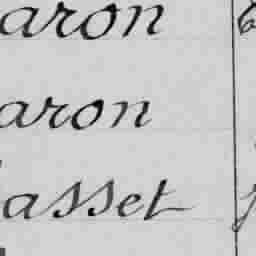 aron
aron
asset